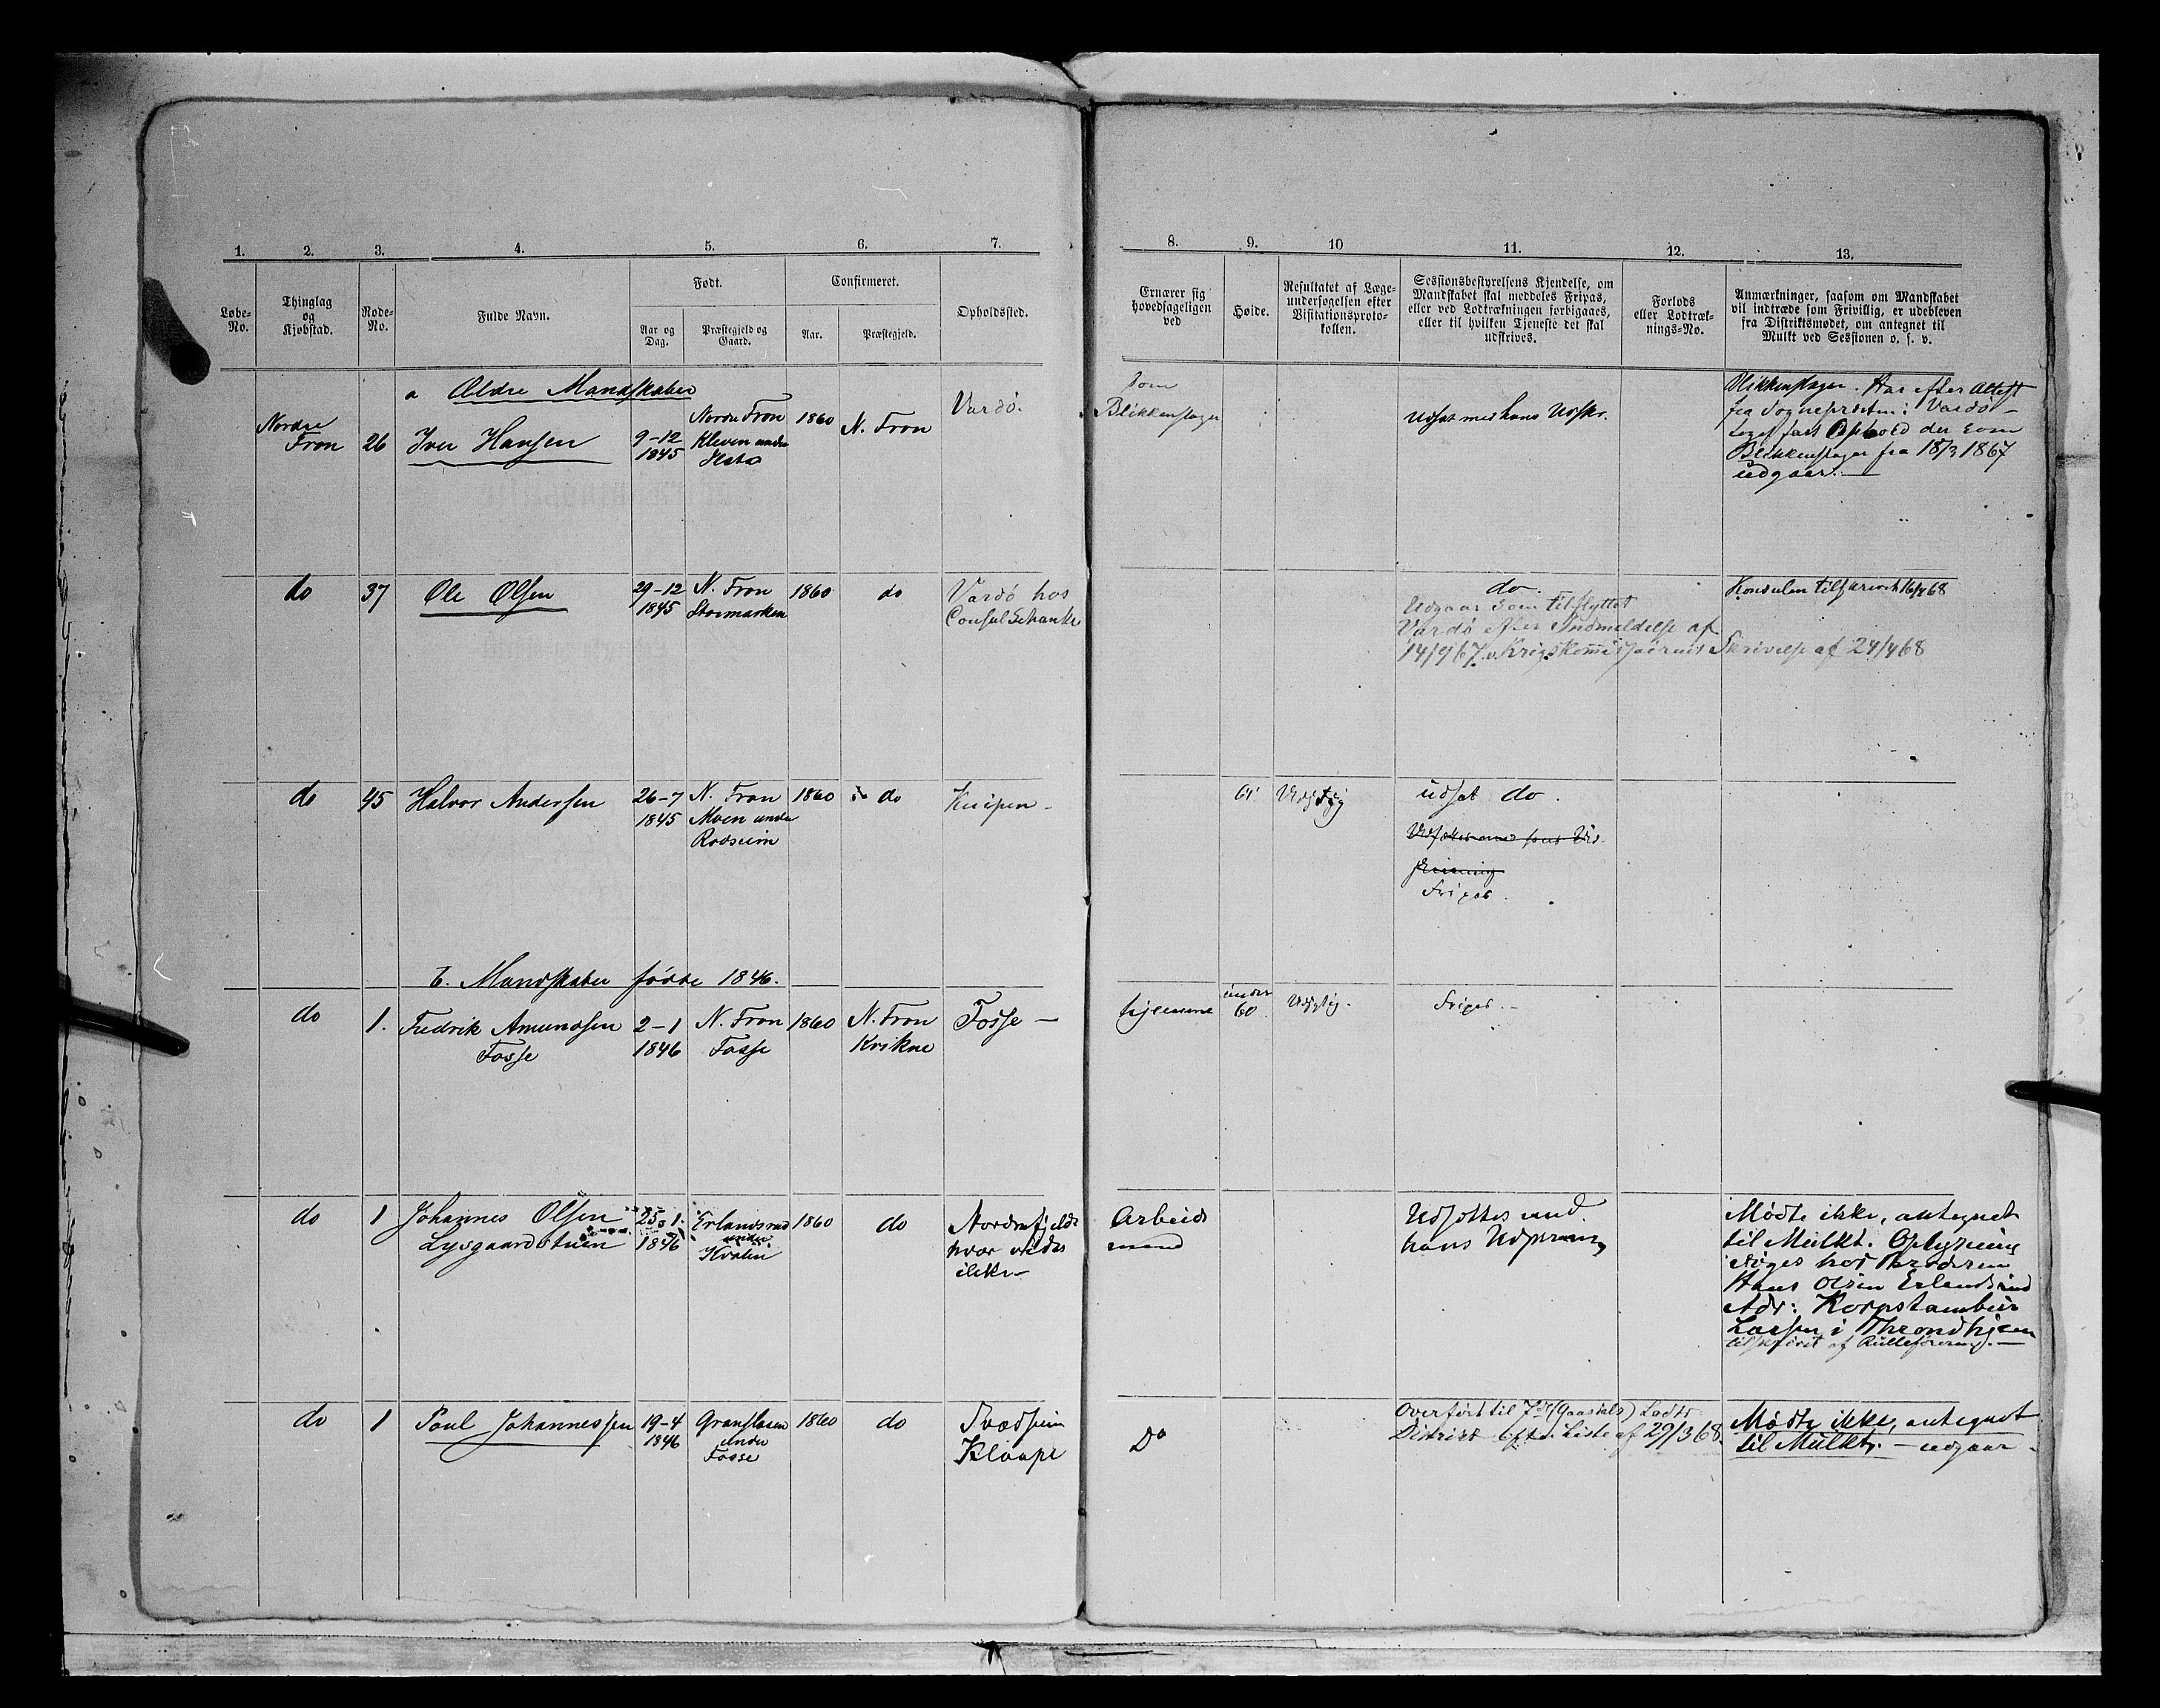 1. 2. 3. 4. 5. 6. 7.
Løbe-
No.
Thinglag
og
Kjøbstad.
Rode-
No.
Fulde Navn.
Født.
Aar og
Dag.
Præstegjeld og
Gaard.
Confirmeret.
Aar.
Præstegjeld.
Opholdssted.
8. 9. 10 11. 12. 13.
Ernærer sig
hovedsageligen
ved
Høide.
Resultatet af Læge-
undersøgelsen efter
Visitationsproto-
kollen.
Sessionsbestyrelsens Kjendelse, om
Mandskabet skal meddeles Fripas,
eller ved Lodtrækningen forbigaaes,
eller til hvilken Tjeneste det skal
udskrives.
Forlods
eller Lodtræk-
nings-No.
Anmærkninger, saasom om Mandskabet
vil indtræde som Frivillig, er udebleven
fra Distriktsmødet, om antegnet til
Mulkt ved Sessionen o. s. v.
a Ældre Mandskaber
Nordre
Fron
26
Iver Hansen
9-12
1845
Nordre Fron
Kleven under
1860
N. Fron
Vardö.
Som
Blikkenslager
Udsat med hans Udskr.
Blikkenslager. Har efter Attest
fra Sognepræsten i Vardö
taget fast Ophold der som
Blikkenslager fra 18/3 1867
udgaar.
do
37
Ole Olsen
29-12
1845
N. Fron
Stormarken
1860
do
Vardö hos
Consul Schanke
do.
Udgaar som tilflyttet
Vardö efter Indmeldelse af
14/9 67 v. Krigskommissairens Skrivelse af 24/4 68
Konsulen tilskrevet 16/4 68
do
45
Halvor Andersen
26-7
1845
N. Fron
Moen under
Rodseim
1860
do
Knipen
61
Udygtig
udsat do.
Udsættes med hans Ud-
skrivning
Fripas.
b. Mandskaber födte 1846.
do
1.
Fredrik Amundsen
Fosse
2-1
1846
N. Fron
Fosse
1860
N. Fron
Kvikne
Fosse
hjemme
under
60
Udygtig.
Fripas.
do
1
Johannes Olsen
Lysgaardstuen
25-1
1846
Erlandsrud
under
Kvalen
1860
do
Nordenfjelds
hvor vides
ikke
Arbeids
mand
Udsættes med
hans Udskrivning
Mödte ikke, antegnet
til Mulkt. Oplysning
söges hos Broderen
Hans Olsen Erlandsrud
Adr: Korpstambur
Larsen i Throndhjem
tilskrevet af Rulleförer
do
1
Poul Johannessen
19-4
1846
under
Fosse
1860
do
Kloape
Do
Overført til 7de (Gausdals) Lodtr.
District efter Liste af 29/3 68.
Mödte ikke, antegnet
til Mulkt. - udgaar.